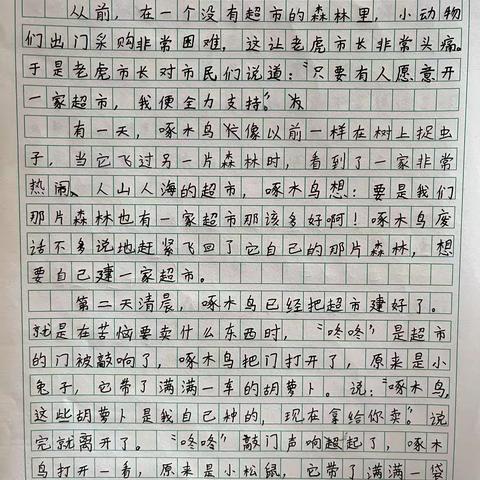 从前，在一个没有超市的森林里，小动物
们出门采购非常困难，这让老虎市长非常头痛。
于是老虎市长对市民们说道：“只要有人愿意开
一家超市，我便全力支持。”
有一天，啄木鸟像以前一样在树上捉虫
子，当它飞过另一片森林时，看到了一家非常
热闹、人山人海的超市，啄木鸟想：要是我们
那片森林也有一家超市那该多好啊！啄木鸟废
话不多说地赶紧飞回了它自己的那片森林，想
要自己建一家超市。
第二天清晨，啄木鸟已经把超市建好了。
就是在苦恼要卖什么东西时，“咚咚”是超市
的门被敲响了，啄木鸟把门打开了，原来是小
兔子，它带了满满一车的胡萝卜。说：“啄木鸟，
这些胡萝卜是我自己种的，现在拿给你卖。”说
完就离开了。“咚咚”敲门声响起了，啄木
鸟打开一看，原来是小松鼠，它带了满满一袋